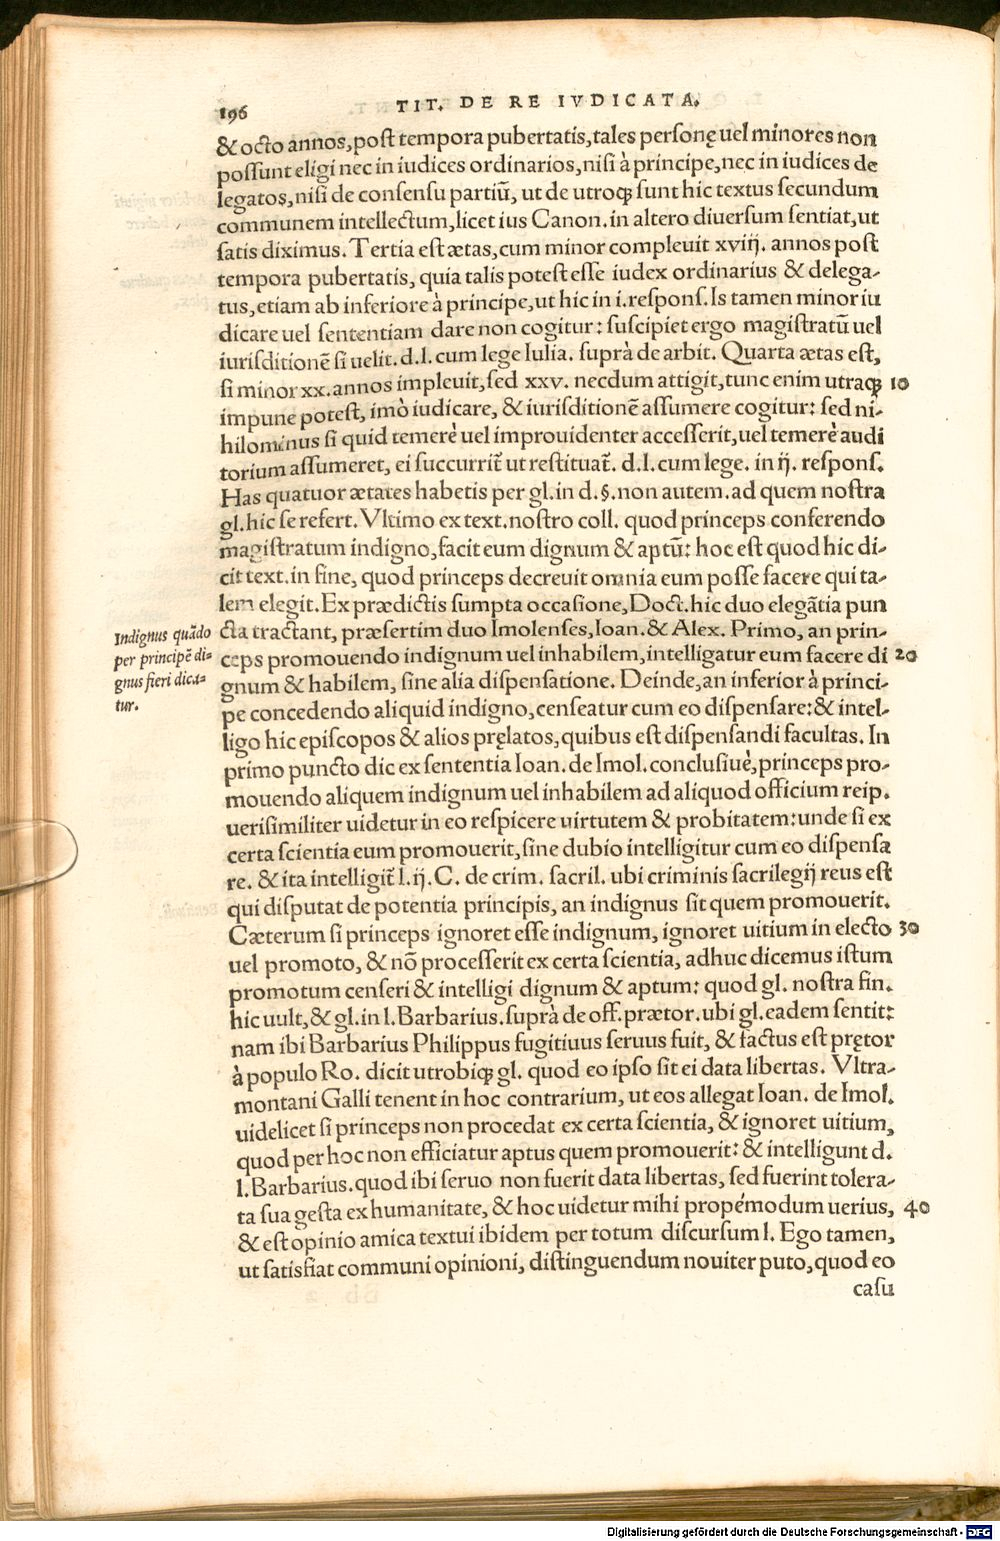 196
TIT. DE RE IVDICATA.
& octo annos, post tempora pubertatis, tales personę uel minores non
possunt eligi nec in iudices ordinarios, nisi à principe, nec in iudices de
legatos, nisi de consensu partiũ, ut de utroqꝫ sunt hic textus secundum
communem intellectum, licet ius Canon. in altero diuersum sentiat, ut
satis diximus. Tertia est ætas, cum minor compleuit xviij. annos post
tempora pubertatis, quia talis potest esse iudex ordinarius & delega-
tus, etiam ab inferiore à principe, ut hic in i. respons. Is tamen minor iu
dicare uel sententiam dare non cogitur: suscipiet ergo magistratũ uel
iurisditionẽ si uelit. d. l. cum lege Iulia. suprà de arbit. Quarta ætas est,
si minor xx. annos impleuit, sed xxv. necdum attigit, tunc enim utraqꝫ 10
impune potest, imò iudicare, & iurisditionẽ assumere cogitur: sed ni-
hilominus si quid temerè uel improuidenter accesserit, uel temerè audi
torium assumeret, ei succurrit̃ ut restituat̃. d. l. cum lege. in ij. respons.
Has quatuor ætates habetis per gl. in d. §. non autem. ad quem nostra
gl. hic se refert. Vltimo ex text. nostro coll. quod princeps conferendo
magistratum indigno, facit eum dignum & aptũ: hoc est quod hic di-
cit text. in fine, quod princeps decreuit omnia eum posse facere qui ta-
lem elegit. Ex prædictis sumpta occasione, Doct. hic duo elegãtia pun
cta tractant, præsertim duo Imolenses, Ioan. & Alex. Primo, an prin-
ceps promouendo indignum uel inhabilem, intelligatur eum facere di 20
gnum & habilem, sine alia dispensatione. Deinde, an inferior à princi-
pe concedendo aliquid indigno, censeatur cum eo dispensare: & intel-
ligo hic episcopos & alios pręlatos, quibus est dispensandi facultas. In
primo puncto dic ex sententia Ioan. de Imol. conclusiuè, princeps pro-
mouendo aliquem indignum uel inhabilem ad aliquod officium reip.
uerisimiliter uidetur in eo respicere uirtutem & probitatem: unde si ex
certa scientia eum promouerit, sine dubio intelligitur cum eo dispensa
re. & ita intelligit̃ l. ij. C. de crim. sacril. ubi criminis sacrilegij reus est
qui disputat de potentia principis, an indignus sit quem promouerit.
Cæterum si princeps ignoret esse indignum, ignoret uitium in electo 30
uel promoto, & nõ processerit ex certa scientia, adhuc dicemus istum
promotum censeri & intelligi dignum & aptum: quod gl. nostra fin.
hic uult, & gl. in l. Barbarius. suprà de off. prætor. ubi gl. eadem sentit:
nam ibi Barbarius Philippus fugitiuus seruus fuit, & factus est prętor
à populo Ro. dicit utrobiqꝫ gl. quod eo ipso sit ei data libertas. Vltra-
montani Galli tenent in hoc contrarium, ut eos allegat Ioan. de Imol.
uidelicet si princeps non procedat ex certa scientia, & ignoret uitium,
quod per hoc non efficiatur aptus quem promouerit: & intelligunt d.
l. Barbarius. quod ibi seruo non fuerit data libertas, sed fuerint tolera-
ta sua gesta ex humanitate, & hoc uidetur mihi propémodum uerius, 40
& est opinio amica textui ibidem per totum discursum l. Ego tamen,
ut satisfiat communi opinioni, distinguendum nouiter puto, quod eo
casu
Indignus quãdo
per principẽ di-
gnus fieri dica-
tur.
Digitalisierung gefördert durch die Deutsche Forschungsgemeinschaft - DFG